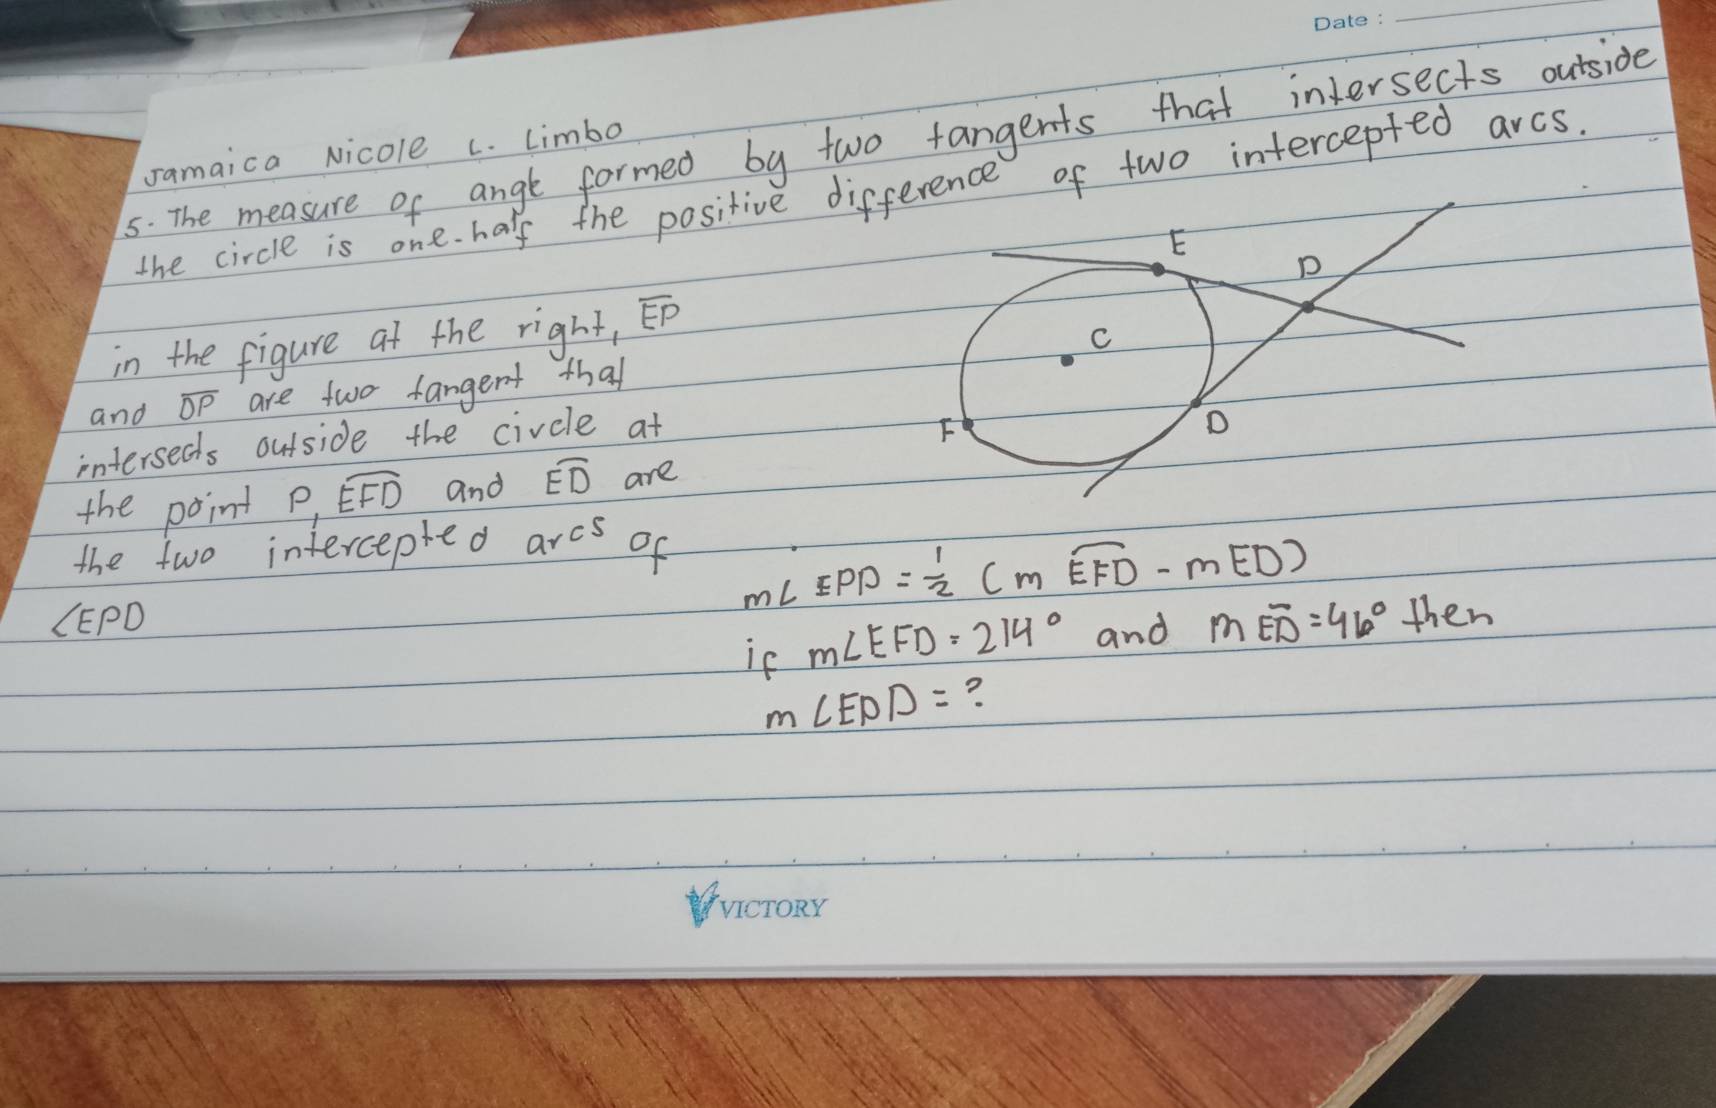 Date :
Jamaica Nicole C. Limbo
5. The measure of angle formed by two tangents that intersects outside
the circle is one-half the positive difference of two intercepted arcs.
in the figure at the right, EP
and DP are two tangent that
intersects outside the circle at
the point P, EFD and ED are
the two intercepted arcs of
∠EPD
E
P
C
F
D
m∠EPD = 1/2 (m EFD - mED)
if m∠EFD = 214° and m ED = 46° then
m∠EPD = ?
VICTORY